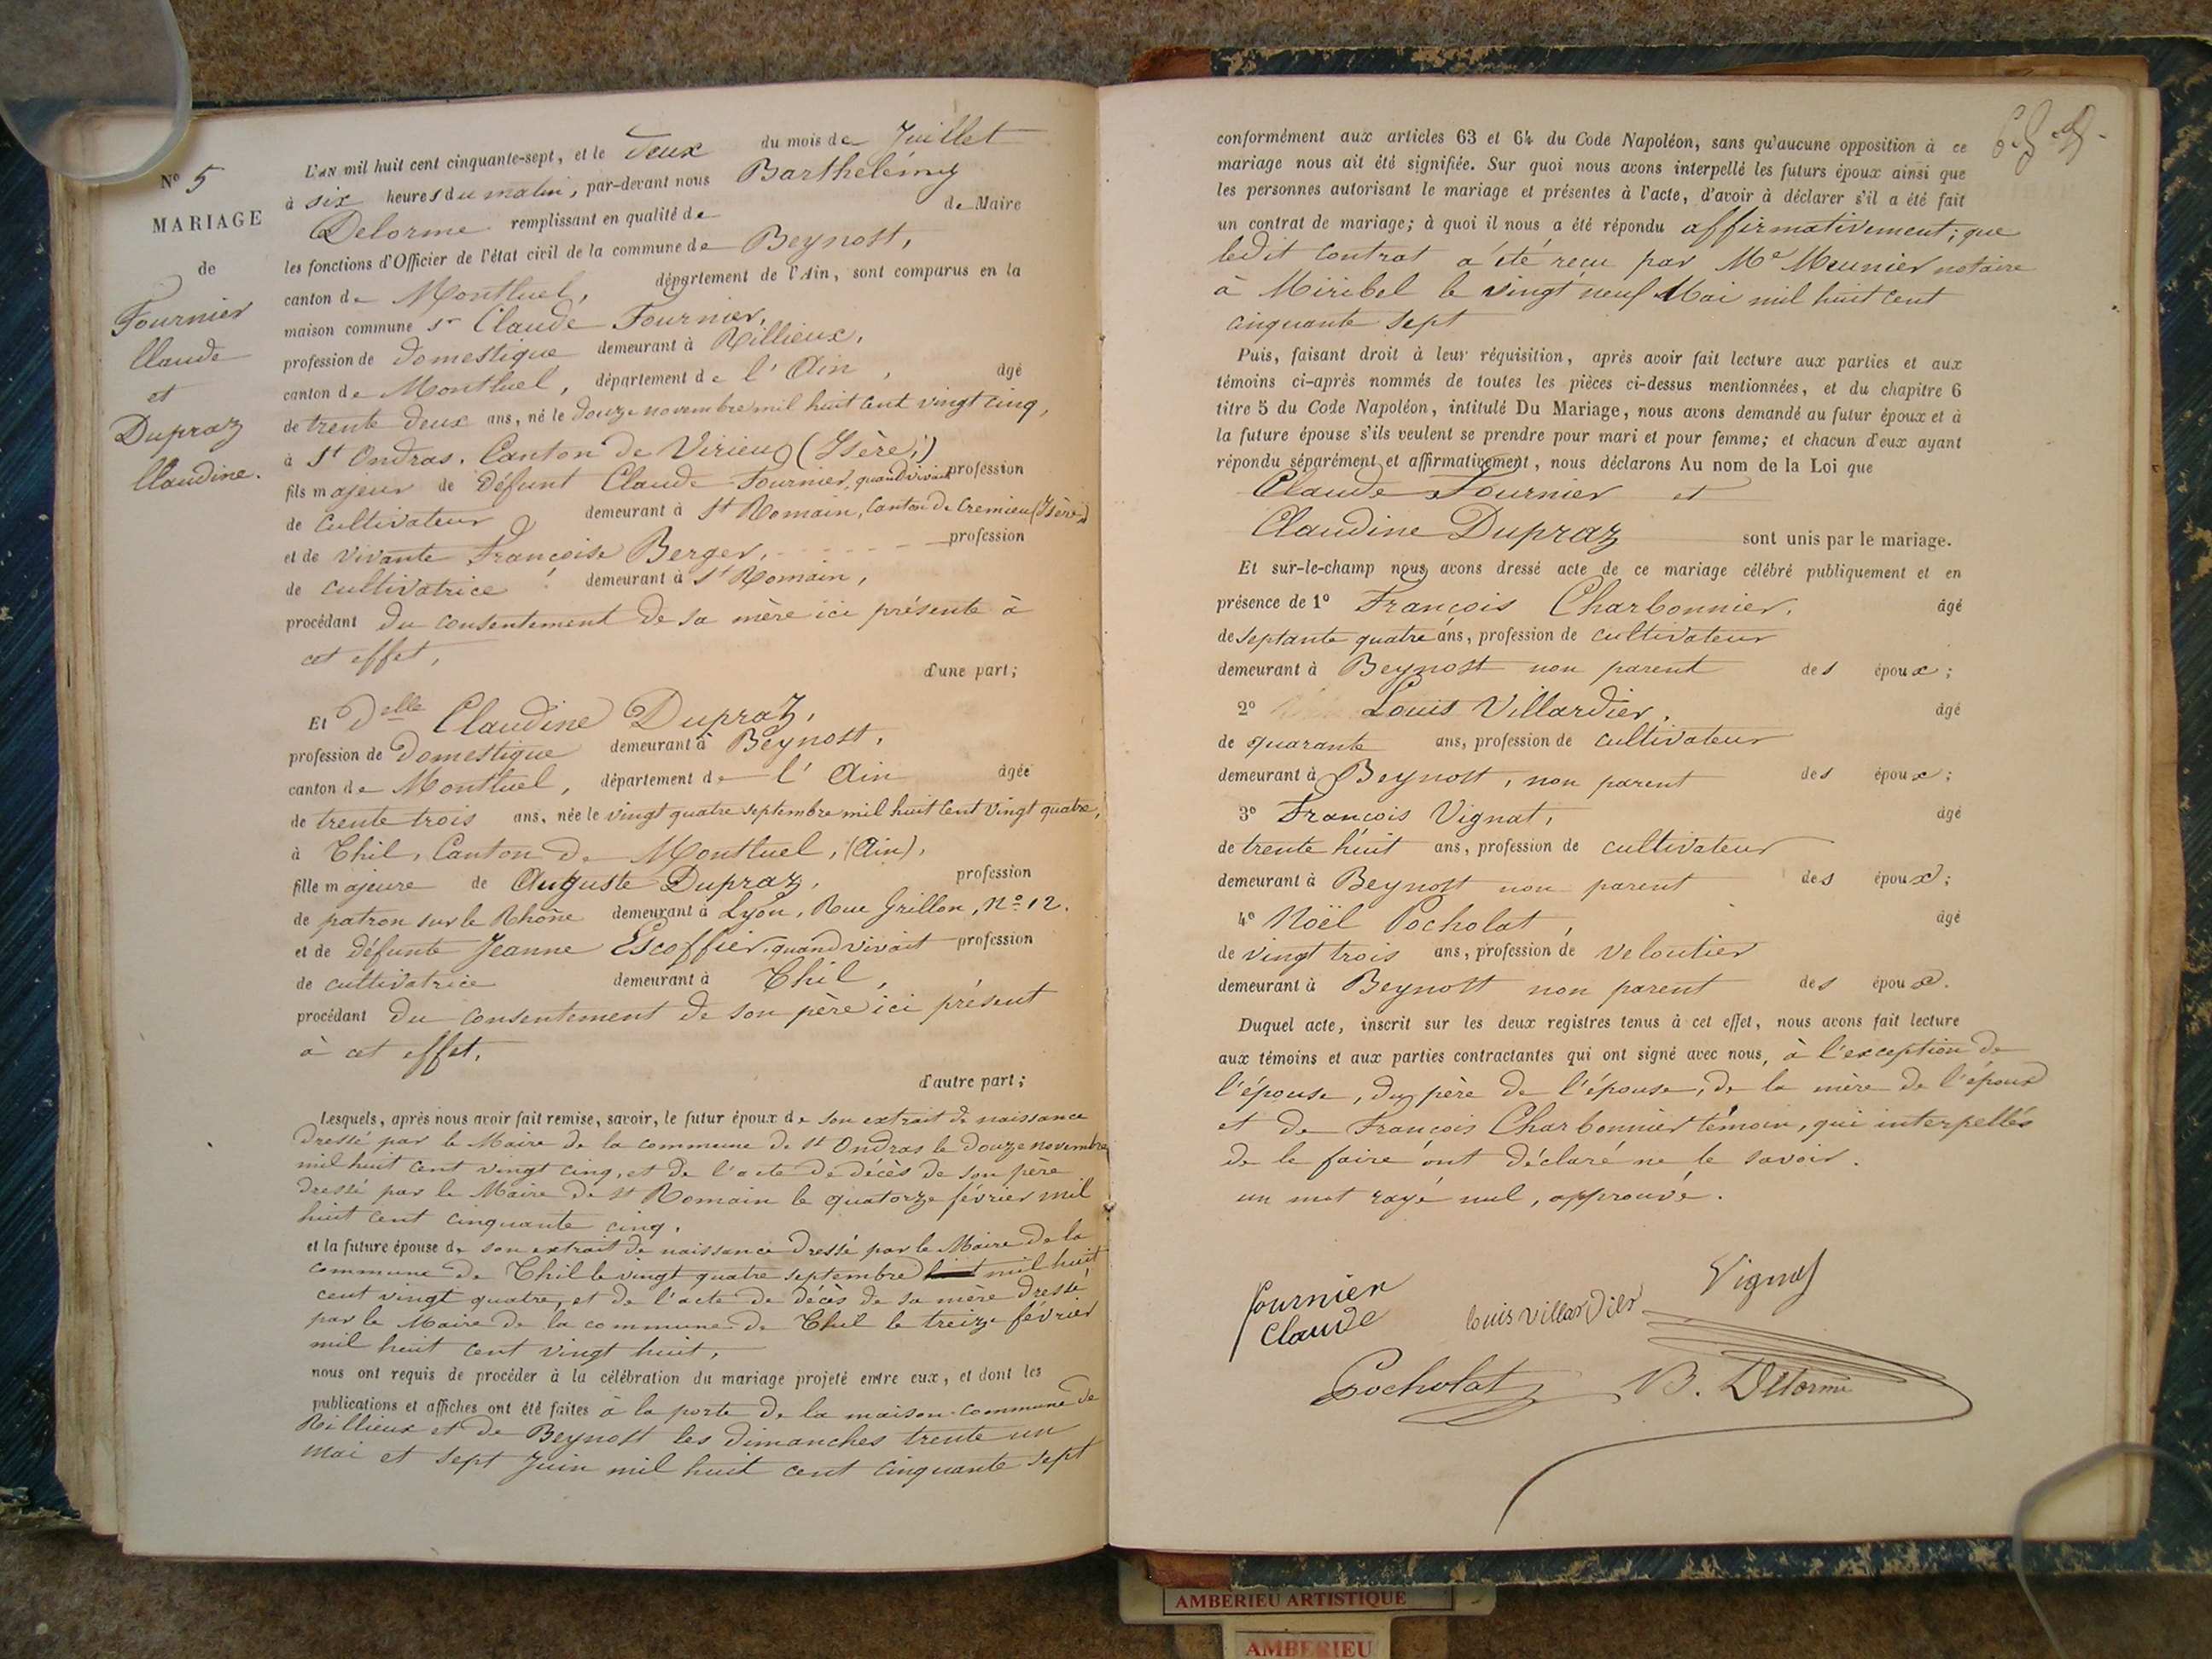 N° 5
MARIAGE
de
Fournier
Claude
et
Dupraz
Claudine.
L'AN mil huit cent cinquante-sept, et le deux du mois de Juillet
à six heures du matin, par-devant nous Barthélémy
Delorme remplissant en qualité de de Maire
les fonctions d'Officier de l'état civil de la commune de Beynost,
canton de Montluel, département de l'Ain, sont comparus en la
maison commune sr Claude Fournier,
profession de domestique demeurant à Rillieux,
canton de Montluel, département de l'Ain, âgé
de trente deux ans, né le douze novembre mil huit cent vingt cinq,
à St Ondras, Canton de Virieu (Isère,)
fils majeur de défunt Claude Fournier, quand vivait profession
de cultivateur demeurant à St Romain, Canton de Cremieu (Isère)
et de vivante Françoise Berger, profession
de cultivatrice demeurant à St Romain,
procédant du consentement de sa mère ici présente à
cet effet,
d'une part;
Et Delle Claudine Dupraz,
profession de domestique demeurant à Beynost,
canton de Montluel, département de l'Ain âgée
de trente trois ans, née le vingt quatre septembre mil huit cent vingt quatre,
à Thil, Canton de Montluel, (Ain),
fille majeure de Auguste Dupraz, profession
de patron sur le Rhône demeurant à Lyon, Rue Grillon, N° 12.
et de défunte Jeanne Escoffier, quand vivait profession
de cultivatrice demeurant à Thil,
procédant du consentement de son père ici présent
à cet effet,
d'autre part;
Lesquels, après nous avoir fait remise, savoir, le futur époux de son extrait de naissance
dressé par le Maire de la commune de St Ondras le douze novembre
mil huit cent vingt cinq, et de l'acte de décès de son père
dressé par le Maire de St Romain le quatorze février mil
huit cent cinquante cinq,
et la future épouse de son extrait de naissance dressé par le Maire de la
commune de Thil le vingt quatre septembre mil huit
cent vingt quatre, et de l'acte de décès de sa mère dressé
par le Maire de la commune de Thil le treize février
mil huit cent vingt huit,
nous ont requis de procéder à la célébration du mariage projeté entre eux, et dont les
publications et affiches ont été faites à la porte de la maison commune de
Rillieux et de Beynost les dimanches trente un
mai et sept Juin mil huit cent cinquante sept
conformément aux articles 63 et 64 du Code Napoléon, sans qu'aucune opposition à ce
mariage nous ait été signifiée. Sur quoi nous avons interpellé les futurs époux ainsi que
les personnes autorisant le mariage et présentes à l'acte, d'avoir à déclarer s'il a été fait
un contrat de mariage; à quoi il nous a été répondu affirmativement; que
ledit contrat a été reçu par Me Meunier notaire
à Miribel le vingt neuf Mai mil huit cent
cinquante sept
Puis, faisant droit à leur réquisition, après avoir fait lecture aux parties et aux
témoins ci-après nommés de toutes les pièces ci-dessus mentionnées, et du chapitre 6
titre 5 du Code Napoléon, intitulé Du Mariage, nous avons demandé au futur époux et à
la future épouse s'ils veulent se prendre pour mari et pour femme; et chacun d'eux ayant
répondu séparément et affirmativement, nous déclarons Au nom de la Loi que
Claude Fournier et
Claudine Dupraz sont unis par le mariage.
Et sur-le-champ nous avons dressé acte de ce mariage célébré publiquement et en
présence de 1° François Charbonnier, âgé
de septante quatre ans, profession de cultivateur
demeurant à Beynost non parent des époux;
2° Louis Villardier, âgé
de quarante ans, profession de cultivateur
demeurant à Beynost, non parent des époux;
3° François Vignat, âgé
de trente huit ans, profession de cultivateur
demeurant à Beynost non parent des époux;
4° Noël Pocholat, âgé
de vingt trois ans, profession de veloutier
demeurant à Beynost non parent des époux.
Duquel acte, inscrit sur les deux registres tenus à cet effet, nous avons fait lecture
aux témoins et aux parties contractantes qui ont signé avec nous, à l'exception de
l'épouse, du père de l'épouse, de la mère de l'époux
et de François Charbonnier témoin, qui interpellés
de le faire ont déclaré ne le savoir.
un mot rayé nul, approuvé.
fournier
Claude
louis villardier
Vignat
Pocholat
B. Delorme
AMBERIEU ARTISTIQUE
AMBERIEU